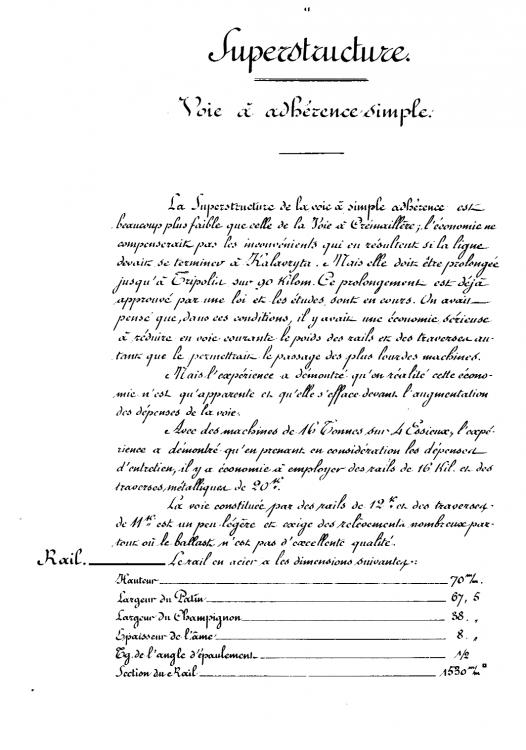 Superstructure.
Voie à adhérence simple.
La Superstructure de la voie à simple adhérence est
beaucoup plus faible que celle de la Voie à Crémaillère; l'économie ne
compenserait pas les inconvénients qui en résultent si la ligne
devait se terminer à Kalavryta. Mais elle doit être prolongée
jusqu'à Tripolis sur 90 Kilom. Ce prolongement est déjà
approuvé par une loi et les études sont en cours. On avait
pensé que, dans ces conditions, il y avait une économie sérieuse
à réduire en voie courante le poids des rails et des traverses au-
tant que le permettrait le passage des plus lourdes machines.
Mais l'expérience a démontré qu'en réalité cette écono-
mie n'est qu'apparente et qu'elle s'efface devant l'augmentation
des dépenses de la voie.
Avec des machines de 16 Tonnes sur 4 Essieux, l'expé-
rience a démontré qu'en prenant en considération les dépenses
d'entretien, il y a économie à employer des rails de 16 Kil. et des
traverses métalliques de 20 K.
La voie constituée par des rails de 12 K et des traverses
de 11 K est un peu légère et exige des relèvements nombreux par-
tout où le ballast n'est pas d'excellente qualité.
Rail. Le rail en acier a les dimensions suivantes:
Hauteur 70 m/m.
Largeur du Patin 67,5
Largeur du Champignon 38. "
Epaisseur de l'âme 8. "
Tg. de l'angle d'épaulement 1/2
Section du Rail 1530 m/m²